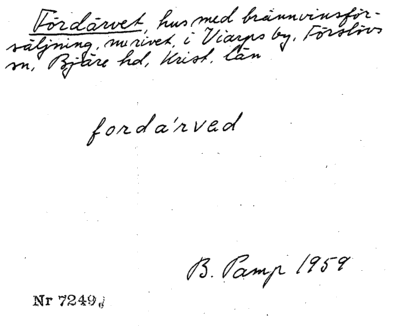 Fördärvet, hus med brännvinsför-
säljning, nu rivet, i Viarps by, Förslövs
sn, Bjäre hd, Krist. län
fordárved
B. Pamp 1959
Nr 7249